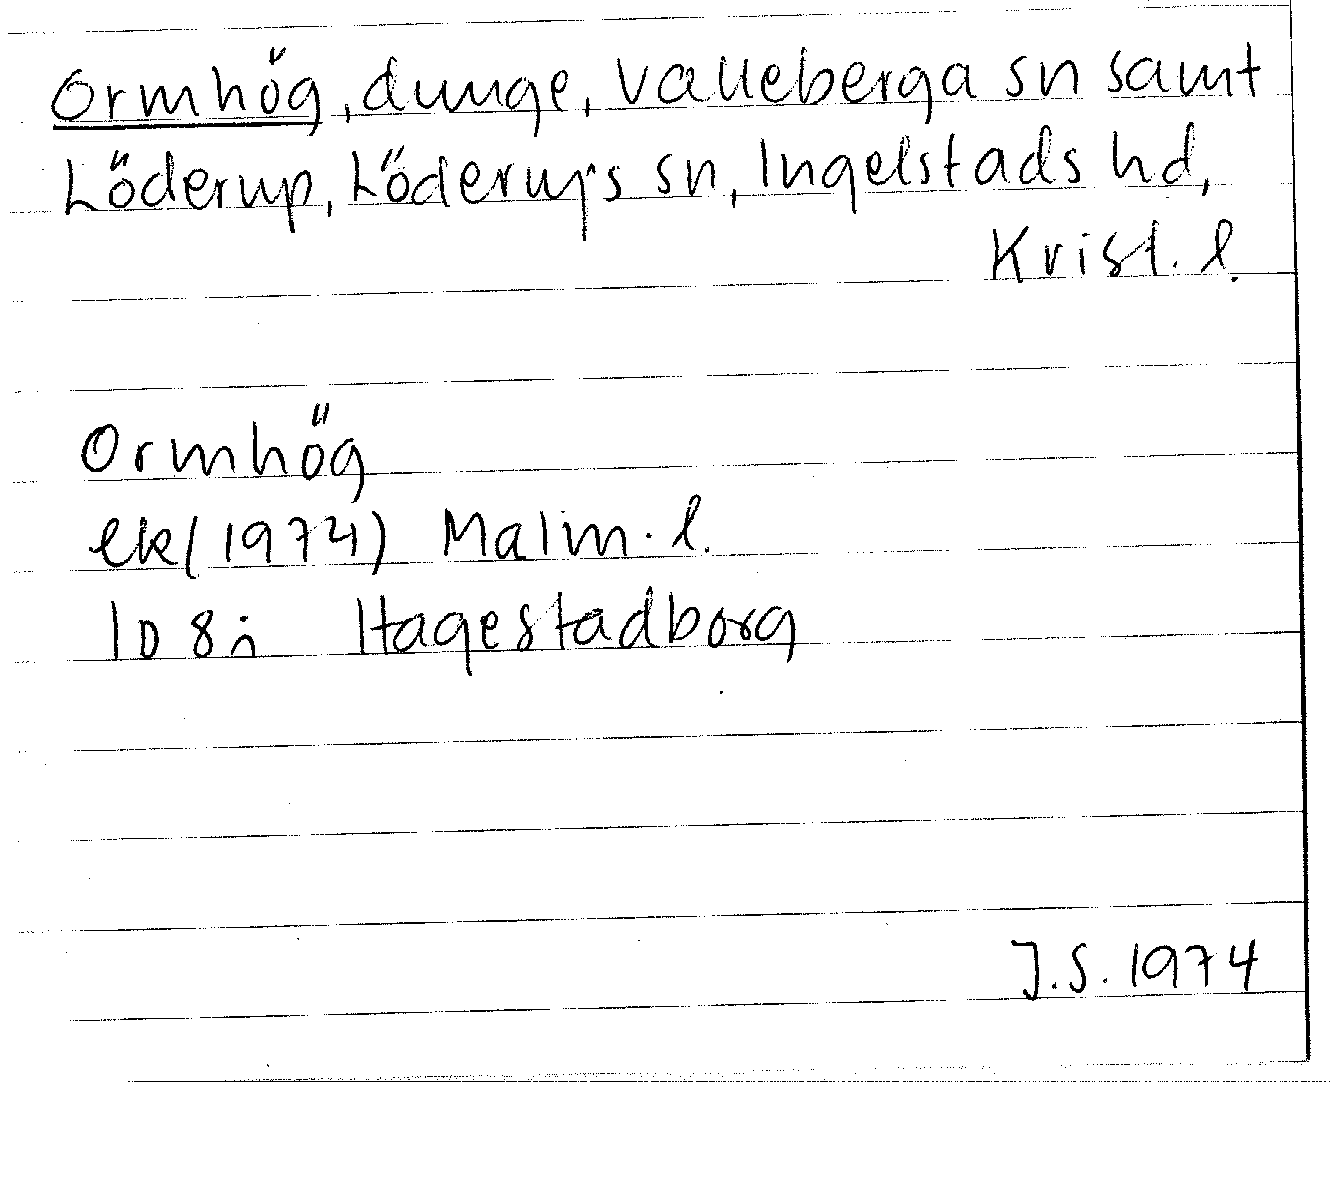 Ormhög, dunge, Valleberga sn samt
Löderup, Löderups sn, Ingelstads hd,
Krist. l.
Ormhög
ek (1974) Malm. l.
1D 8i Hagestadborg
J.S. 1974